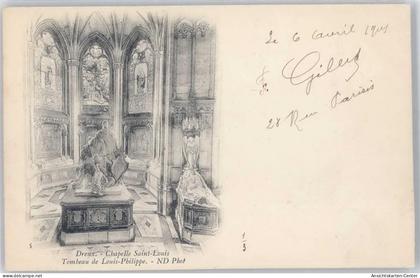 Le 6 avril 1901
28 Rue Parisis
5
Dreux. - Chapelle Saint-Louis
Tombeau de Louis-Philippe. - ND Phot
1
3
www.ansichtskartenversand.com